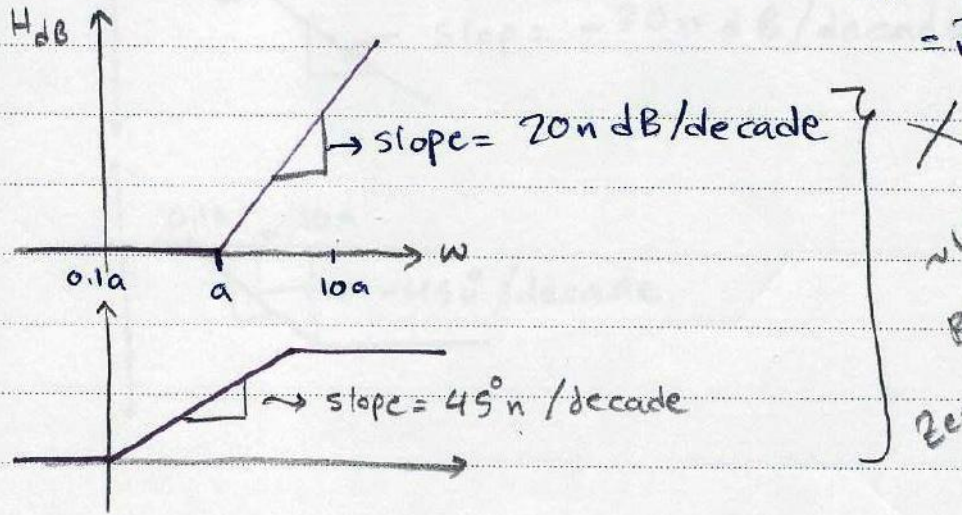 H dB
slope = 20n dB/decade
ω
0.1a a 10a
slope = 45° n /decade